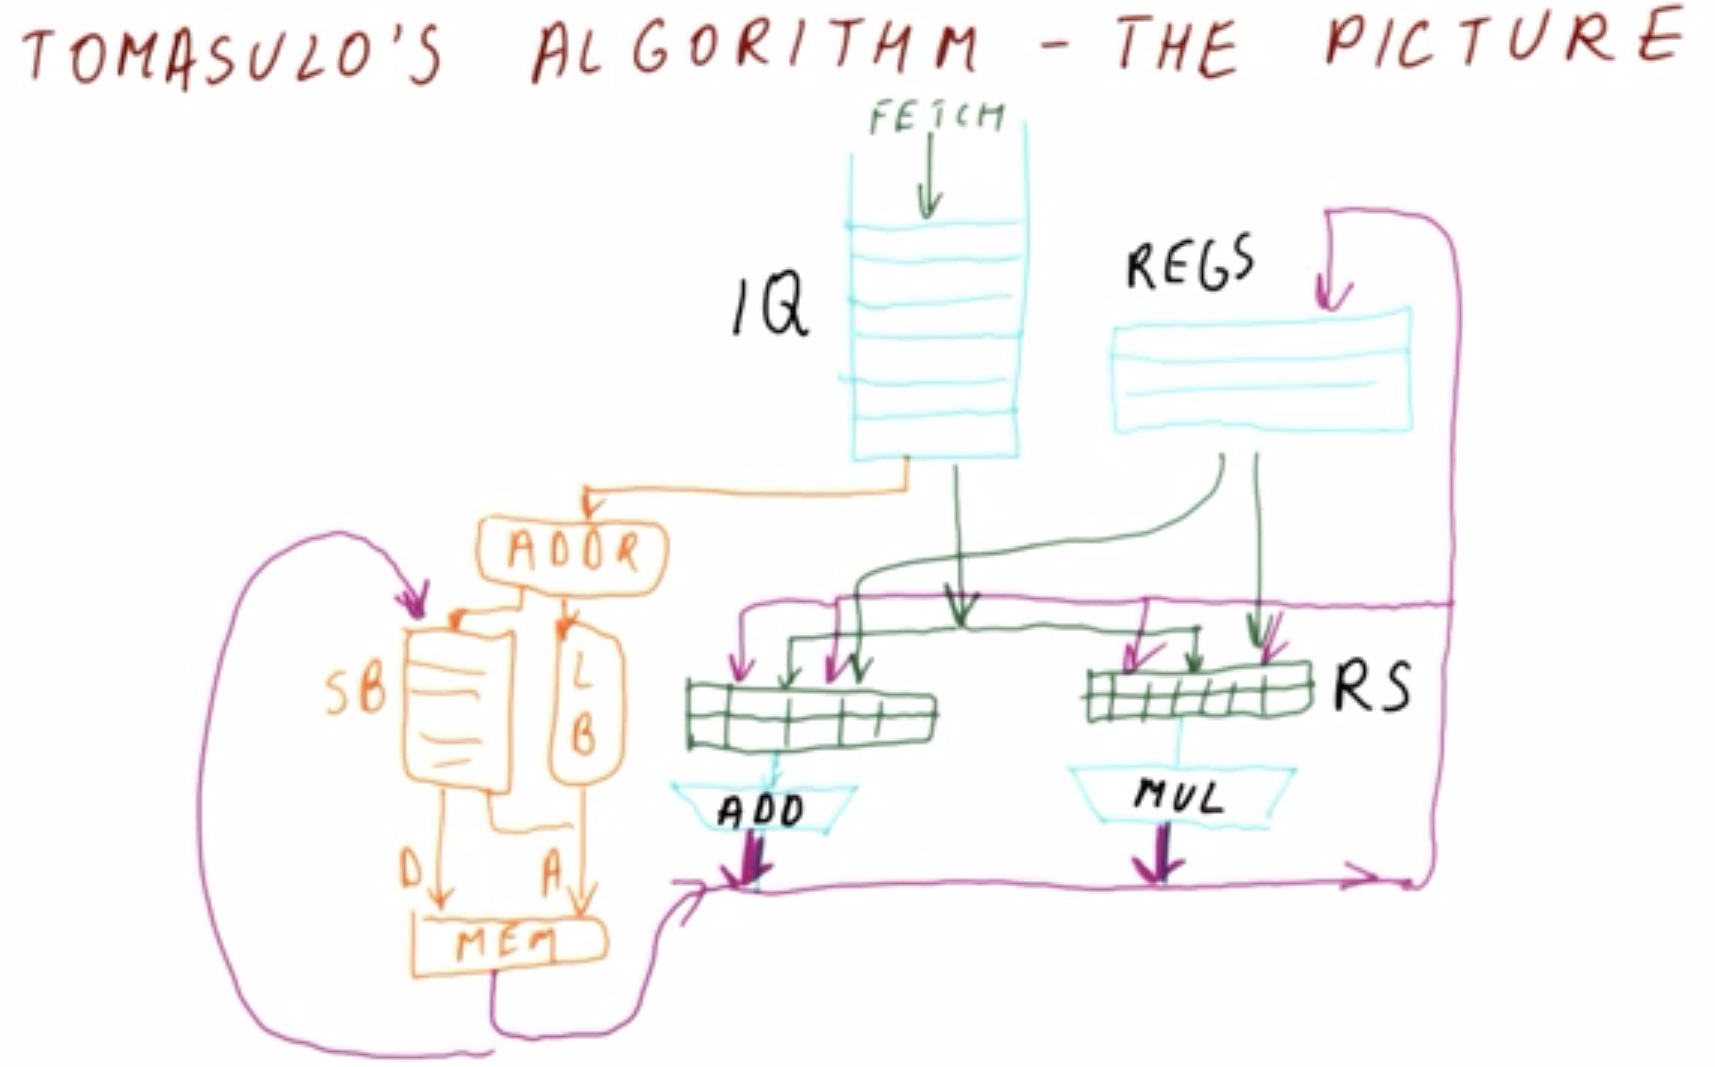 TOMASULO'S ALGORITHM - THE PICTURE
FETCH
IQ
REGS
ADDR
SB
LB
RS
ADD
MUL
D
A
MEM